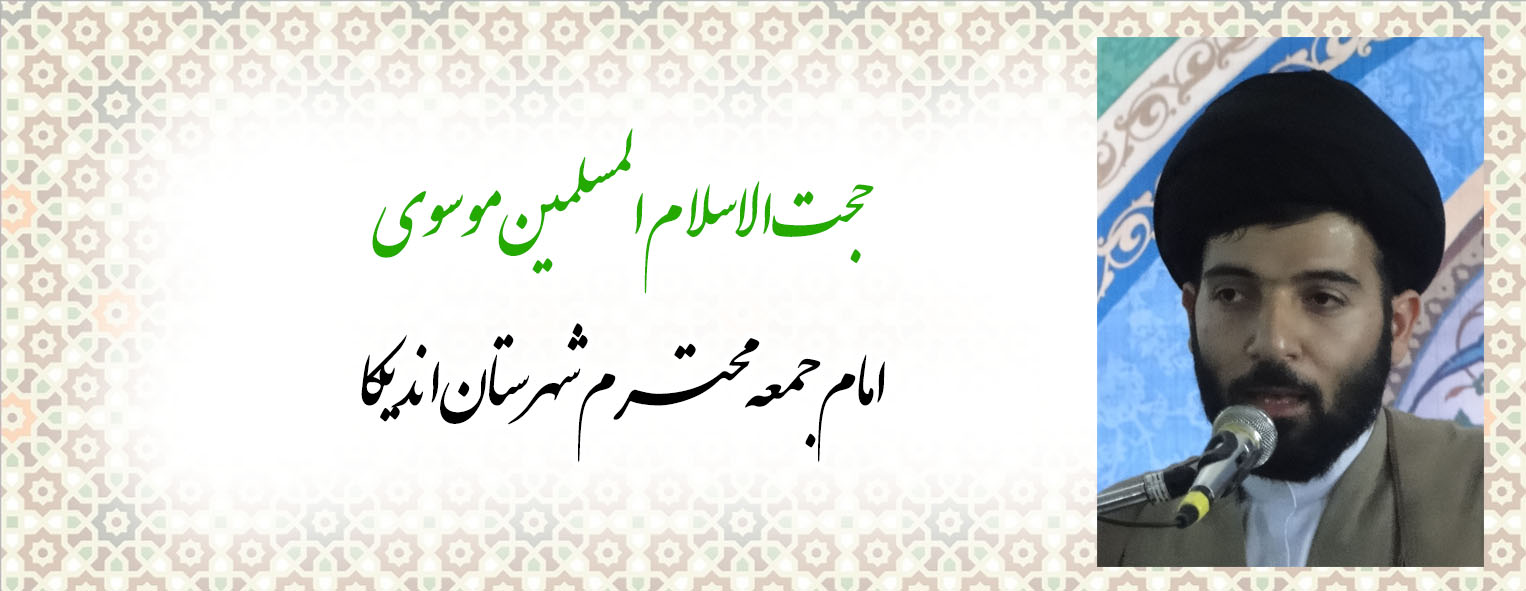 حجت الاسلام المسلمین موسوی
امام جمعه محترم شهرستان اندیکا